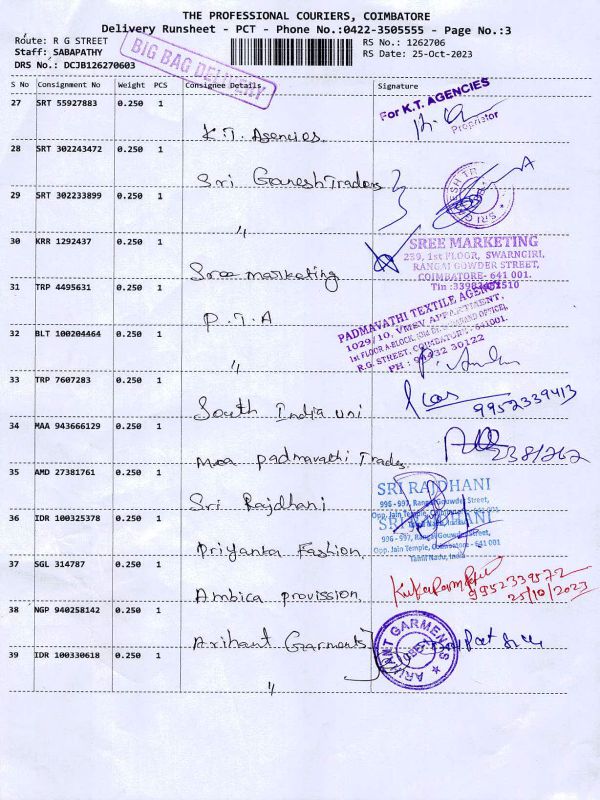 THE PROFESSIONAL COURIERS, COIMBATORE
Delivery Runsheet - PCT - Phone No.:0422-3505555 - Page No.:3
Route: R G STREET
Staff: SABAPATHY
DRS No.: DCJB126270603
BIG BAG DELIVERY
RS No.: 1262706
RS Date: 25-Oct-2023
S No Consignment No Weight PCS Consignee Details Signature
27 SRT 55927883 0.250 1 K.T. Agencies.
For K.T. AGENCIES
Proprietor
28 SRT 302243472 0.250 1 Sri Ganesh Traders
29 SRT 302233899 0.250 1 "
30 KRR 1292437 0.250 1 Sree marketing
SREE MARKETING
239, 1st FLOOR, SWARNGIRI,
RANGAI GOWDER STREET,
COIMBATORE- 641 001.
31 TRP 4495631 0.250 1 P.T.A
PADMAVATHI TEXTILE AGENCY
R.G. STREET, COIMBATORE - 641001.
32 BLT 100204464 0.250 1 "
33 TRP 7607283 0.250 1 South India uni
9952339413
34 MAA 943666129 0.250 1 Moa padmavathi Trades.
35 AMD 27381761 0.250 1 Sri Rajdhani
SRI RAJDHANI
996 - 997, Rangai Gouwder Street,
36 IDR 100325378 0.250 1 Priyanka Fashion.
SRI RAJDHANI
996 - 997, Rangai Gouwder Street,
Opp. Jain Temple, Coimbatore - 641 001
Tamil Nadu, India
37 SGL 314787 0.250 1 Ambica provission.
9952339572
25/10/2023
38 NGP 940258142 0.250 1 Arihant Garments
ARIHANT GARMENTS
39 IDR 100330618 0.250 1 "